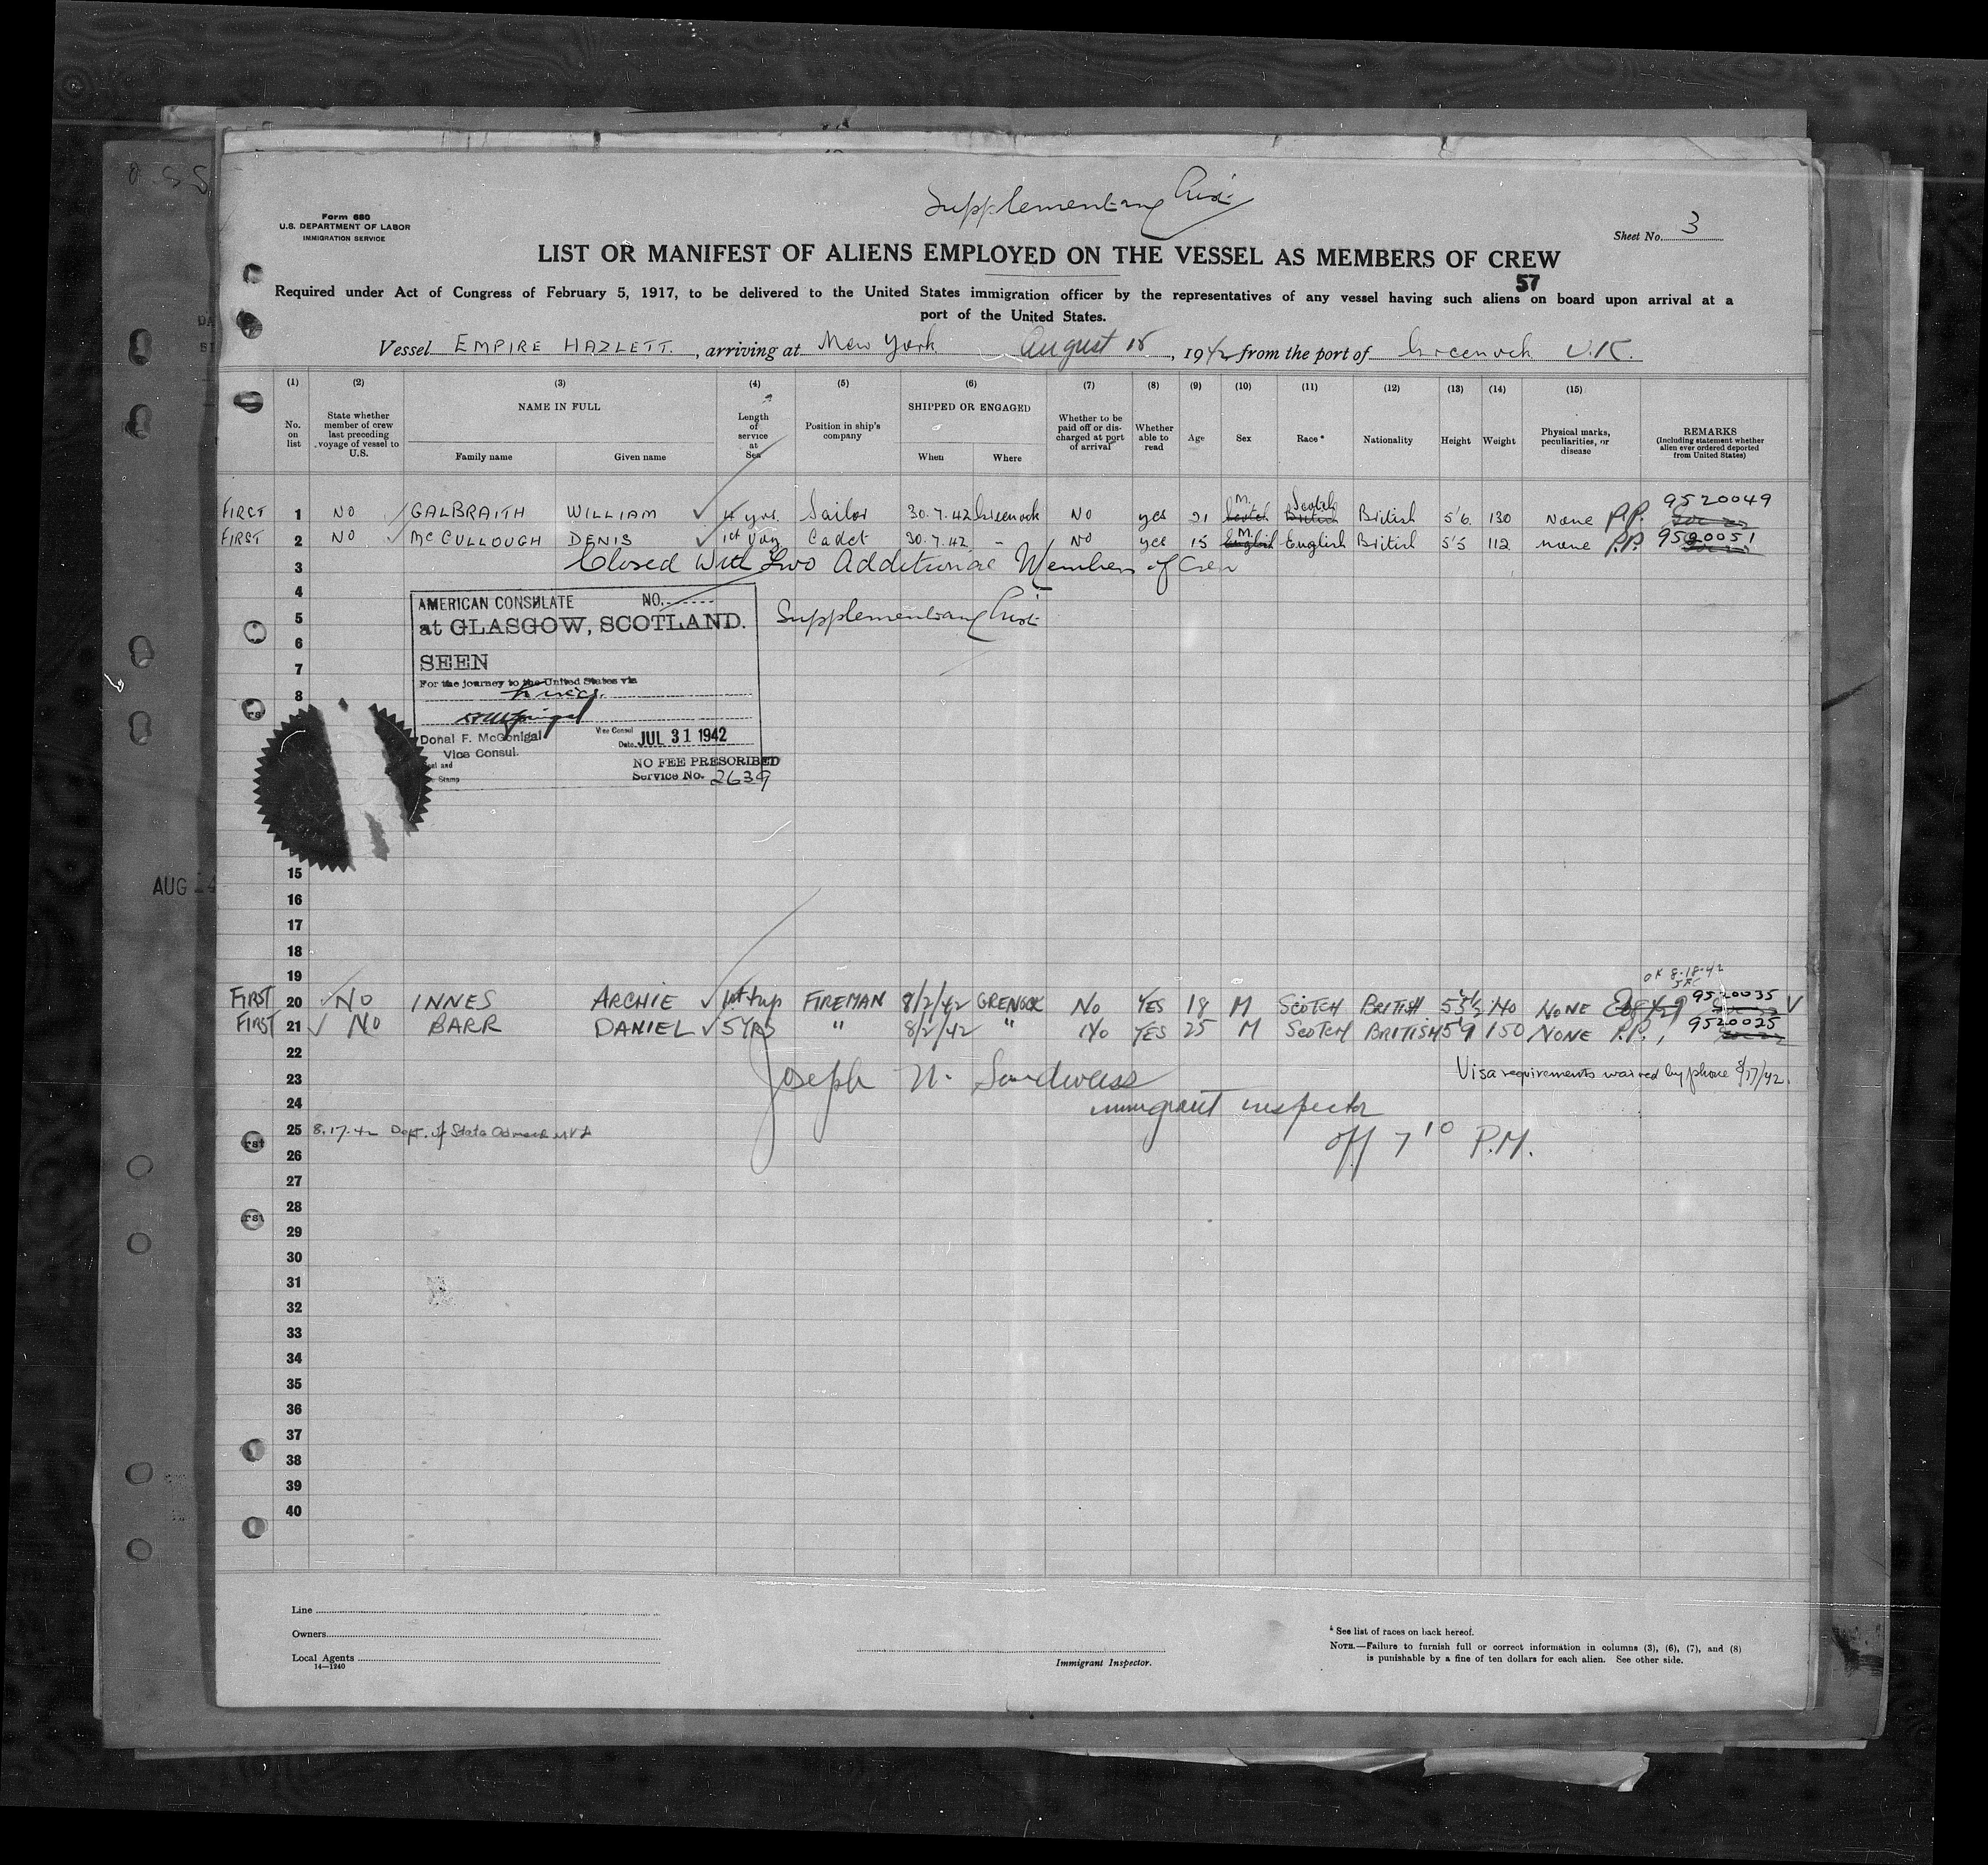 Supplementary List
Form 680
U.S. DEPARTMENT OF LABOR
IMMIGRATION SERVICE
Sheet No. 3
LIST OR MANIFEST OF ALIENS EMPLOYED ON THE VESSEL AS MEMBERS OF CREW
57
Required under Act of Congress of February 5, 1917, to be delivered to the United States immigration officer by the representatives of any vessel having such aliens on board upon arrival at a
port of the United States.
Vessel EMPIRE HAZLETT., arriving at New York August 18, 1942 from the port of Greenock U.K.
(1) (2) (3) (4) (5) (6) (7) (8) (9) (10) (11) (12) (13) (14) (15)
No. on list
State whether member of crew last preceding voyage of vessel to U.S.
NAME IN FULL
Family name Given name
Length of service at Sea
Position in ship's company
SHIPPED OR ENGAGED
When Where
Whether to be paid off or discharged at port of arrival
Whether able to read
Age
Sex
Race*
Nationality
Height
Weight
Physical marks, peculiarities, or disease
REMARKS
(Including statement whether alien ever ordered deported from United States)
FIRST 1 NO GALBRAITH WILLIAM 4 yrs. Sailor 30.7.42 Greenock NO yes 21 Scotch M. British Scotch British 5'6 130 None P.P. 9520049
FIRST 2 NO McCULLOUGH DENIS 1st Voy Cadet 30.7.42 - NO yes 15 English M. English British 5'5 112 none P.P. 9520051
3 Closed With Two Additional Members of Crew
4
5 Supplementary List
6
7
8
AMERICAN CONSULATE NO.
at GLASGOW, SCOTLAND.
SEEN
For the journey to the United States via
Donal F. McGonigal
Vice Consul.
Vice Consul
Date JUL 31 1942
Seal and
Stamp
NO FEE PRESCRIBED
Service No. 2639
AUG 24
15
16
17
18
19 OK 8-18-42
FIRST 20 NO INNES ARCHIE 1st trip FIREMAN 8/2/42 GRENOCK NO YES 18 M SCOTCH BRITISH 5'5½ 140 NONE 9520035
FIRST 21 NO BARR DANIEL 5 YRS " 8/2/42 " NO YES 25 M SCOTCH BRITISH 5'9 150 NONE P.P., 9520025
22
23 Joseph N. Sandweiss Visa requirements waived by phone 8/17/42.
24 immigrant inspector
25 8.17.42 Dept. of State
off 7 10 P.M.
26
27
28
29
30
31
32
33
34
35
36
37
38
39
40
Line
Owners
Local Agents
14—1240
Immigrant Inspector.
* See list of races on back hereof.
NOTE.—Failure to furnish full or correct information in columns (3), (6), (7), and (8)
is punishable by a fine of ten dollars for each alien. See other side.